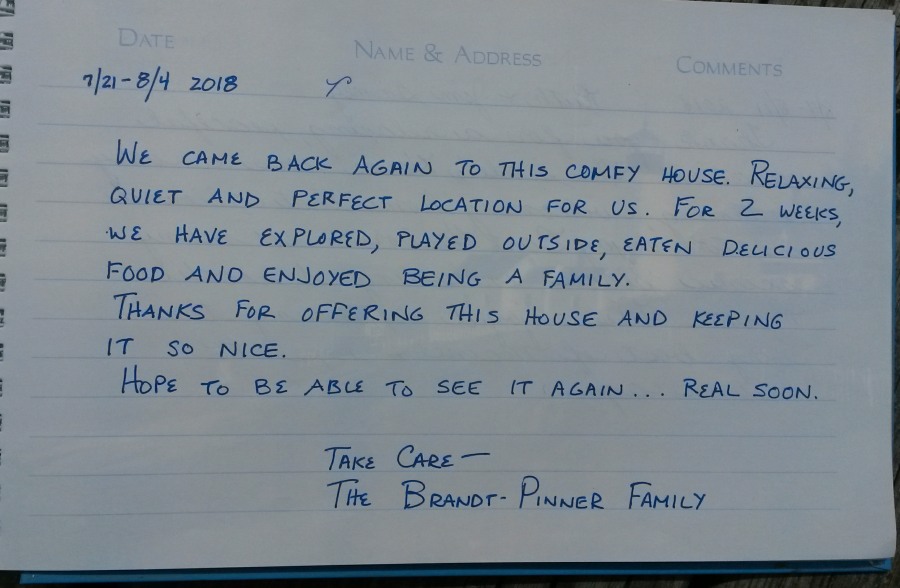 DATE NAME & ADDRESS COMMENTS
7/21-8/4 2018
WE CAME BACK AGAIN TO THIS COMFY HOUSE. RELAXING,
QUIET AND PERFECT LOCATION FOR US. FOR 2 WEEKS,
WE HAVE EXPLORED, PLAYED OUTSIDE, EATEN DELICIOUS
FOOD AND ENJOYED BEING A FAMILY.
THANKS FOR OFFERING THIS HOUSE AND KEEPING
IT SO NICE.
HOPE TO BE ABLE TO SEE IT AGAIN... REAL SOON.
TAKE CARE—
THE BRANDT-PINNER FAMILY